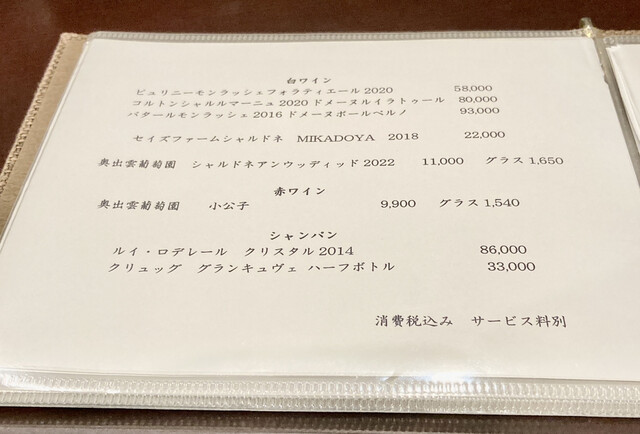 白ワイン
ピュリニーモンラッシェフォラティエール2020 58,000
コルトンシャルルマーニュ2020ドメーヌルイラトゥール 80,000
バタールモンラッシェ2016ドメーヌポールペルノ 93,000
セイズファームシャルドネ MIKADOYA 2018 22,000
奥出雲葡萄園 シャルドネアンウッディッド2022 11,000 グラス1,650
赤ワイン
奥出雲葡萄園 小公子 9,900 グラス1,540
シャンパン
ルイ・ロデレール クリスタル2014 86,000
クリュッグ グランキュヴェ ハーフボトル 33,000
消費税込み サービス料別